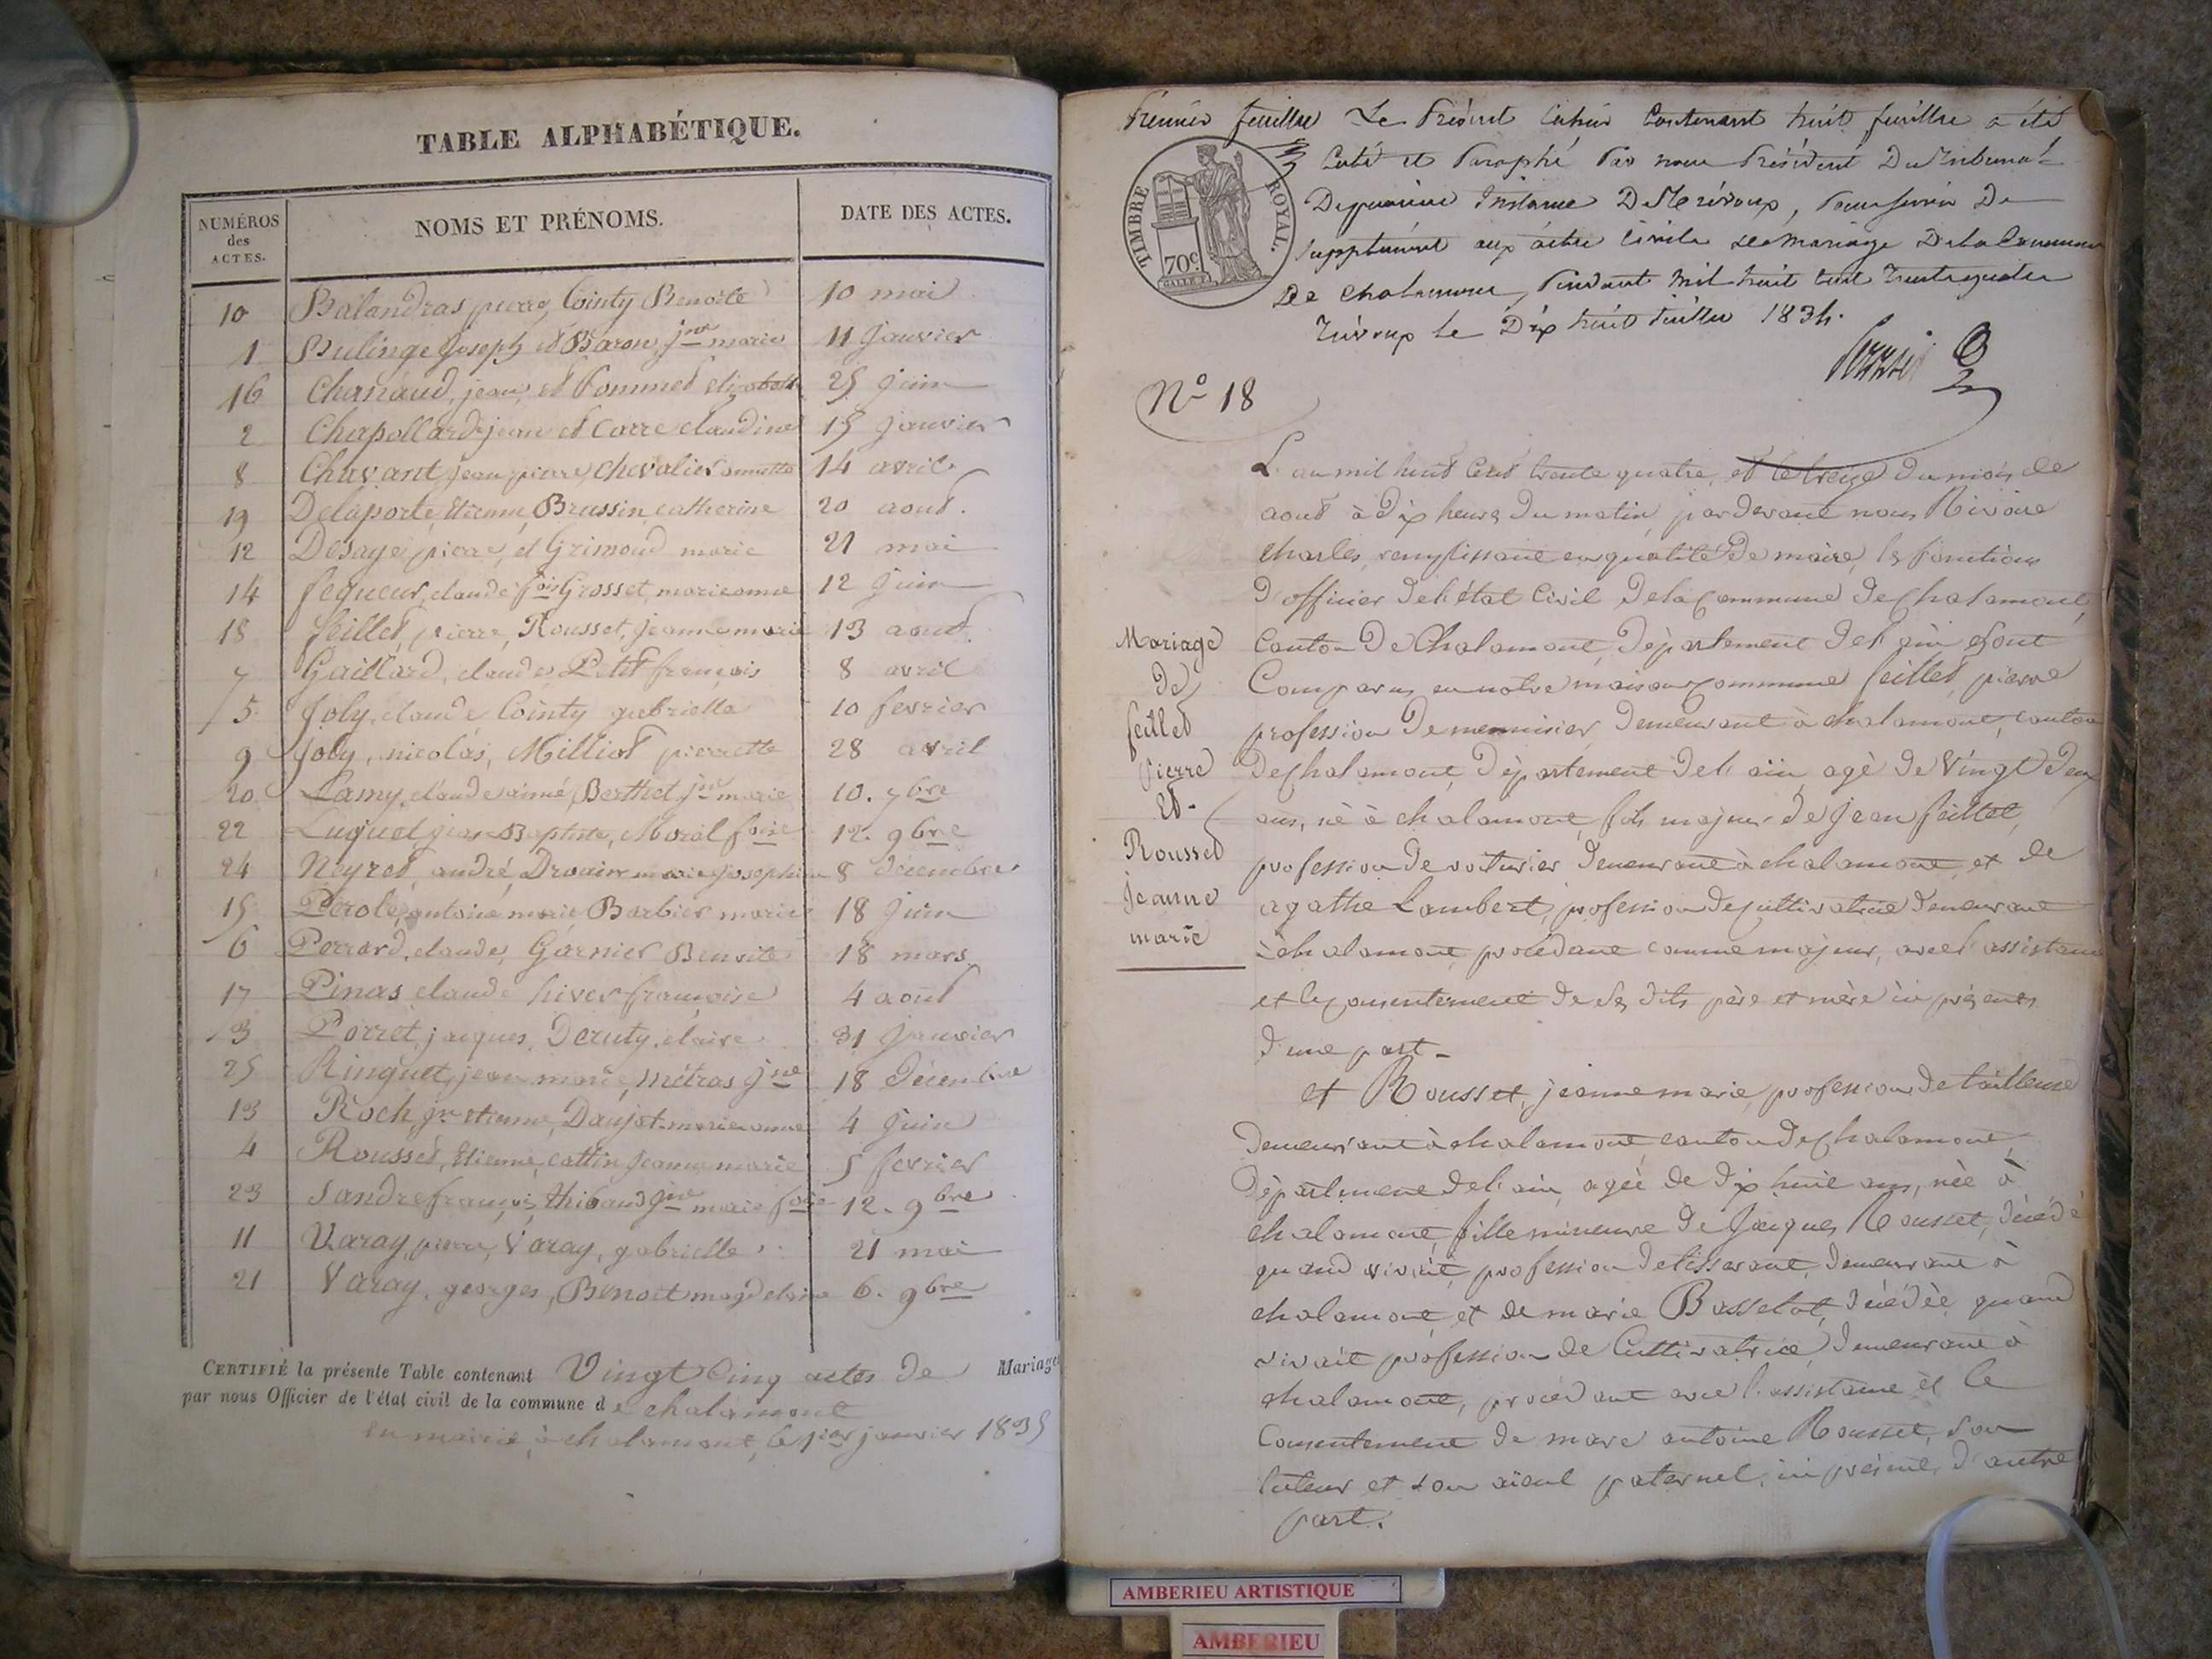 TABLE ALPHABÉTIQUE.
NUMÉROS des ACTES.
NOMS ET PRÉNOMS.
DATE DES ACTES.
10 Balandras pierre, Cointy Benoite 10 mai
1 Bulinge Joseph et Baron jne marie 11 Janvier
16 Chanaud, jean, et Pommet elizabeth 25 Juin
2 Chapollard jean et Carre claudine 15 Janvier
8 Chavant jean pierre, Chevalier 14 avril
19 Delaporte, Etienne, Brussin, catherine 20 aout.
12 Desaye pierre, et Grimoud marie 21 mai
14 fequeur, claude fois Grosset, marieanne 12 Juin
18 feillet, pierre, Rousset, Jeanne marie 13 aout.
7 Gaillard, claude, Petit françois 8 avril
5 Joly, claude Cointy gabrielle 10 fevrier
9 Joly, nicolas, Milliot pierrette 28 avril
20 Lamy, claude aimé, Berthet jne marie 10. 7bre
22 Luquet, jean Baptiste, Morel foise 12. 9bre
24 Neyret, andré, Drouin marie Josephine 8 decembre
15 Perole, antoine marie Barbier marie 18 Juin
6 Perrard, claude, Garnier Benoite 18 mars
17 Pinas claude hiver françoise 4 aout
3 Porret, jacques, Deruty, claire 31 Janvier
25 Ringuet, jean marie, Métras jne 18 Décembre
13 Roch, jn etienne, Daujat marieanne 4 Juin
4 Rousset, Etienne, Cattin Jeanne marie 5 fevrier
23 Sandre françois, thibaud jne marie foise 12. 9bre
11 Varay, pierre, Varay, gabrielle 21 mai
21 Varay, georges, Benoit magdelaine 6. 9bre
CERTIFIÉ la présente Table contenant Vingt Cinq actes de Mariage
par nous Officier de l'état civil de la commune de chalamont
En mairie, à chalamont, le 1ier janvier 1835
Premier feuillet Le Présent Cahier Contenant huit feuillets a été
Coté et Paraphé Par nous Président Du Tribunal
De première Instance De Trévoux, Pour servir De
supplément aux actes Civils de mariage De la Commune
De Chalamont, Pendant mil huit cent trente quatre
Trévoux le Dix huit Juillet 1834.
TIMBRE ROYAL.
70c
No 18
L'an mil huit Cent trente quatre, et le treize du mois de
aout à Dix heures Du matin, pardevant nous Rivoire
Charles, remplissant en qualité De maire, les fonctions
D'officier de l'état Civil de la Commune de Chalamont,
Canton De Chalamont, Département de l'ain, sont
Comparus en notre maison Commune feillet, pierre
profession De menuisier, Demeurant à chalamont, canton
De Chalamont, Département de l'ain, agé de Vingt Deux
ans, né à chalamont, fils majeur de Jean feillet,
profession de voiturier Demeurant à chalamont, et de
agathe Lambert, profession de cultivatrice Demeurant
à chalamont, procédant comme majeur, avec l'assistance
et le consentement de ses dits père et mère ici présents
D'une part -
et Rousset, jeanne marie, profession de tailleuse
Demeurant à chalamont, canton de Chalamont,
Département de l'ain, agée de Dix huit ans, née à
chalamont, fille mineure de Jacques Rousset, décédé
quand vivait, profession de tisserant, Demeurant à
chalamont, et de marie Basselat, décédée, quand
vivait profession de Cultivatrice, Demeurant à
chalamont, procédant avec l'assistance et le
Consentement de marc antoine Rousset, son
tuteur et son aieul paternel, ici présent, D'autre
part.
Mariage
De
feillet
pierre
Et
Rousset
Jeanne
marie
AMBERIEU ARTISTIQUE
AMBERIEU